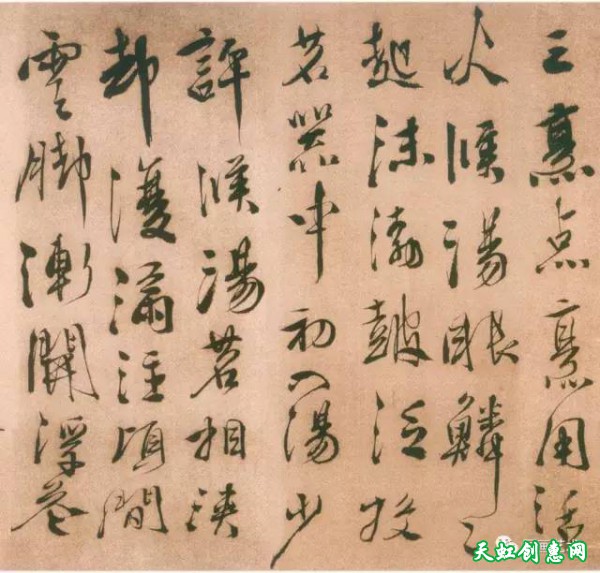 三烹点烹用活
火候湯眼鱗〻
起沫渤鼓泛投
茗器中初入湯少
許候湯茗相浹
却復滿注頃間
雲脚漸開浮花
天虹创惠网